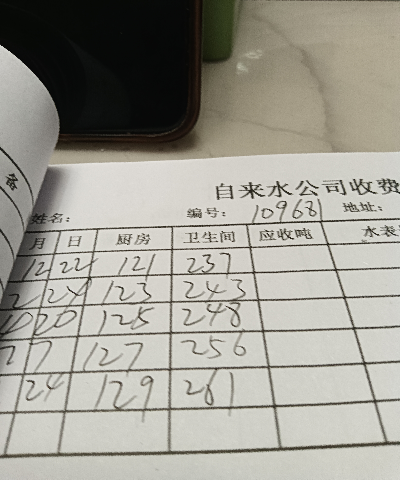 备
自来水公司收费
姓名： 编号： 109681 地址：
月 日 厨房 卫生间 应收吨 水表
12 22 121 237
2 24 123 243
10 20 125 248
7 127 256
24 129 261